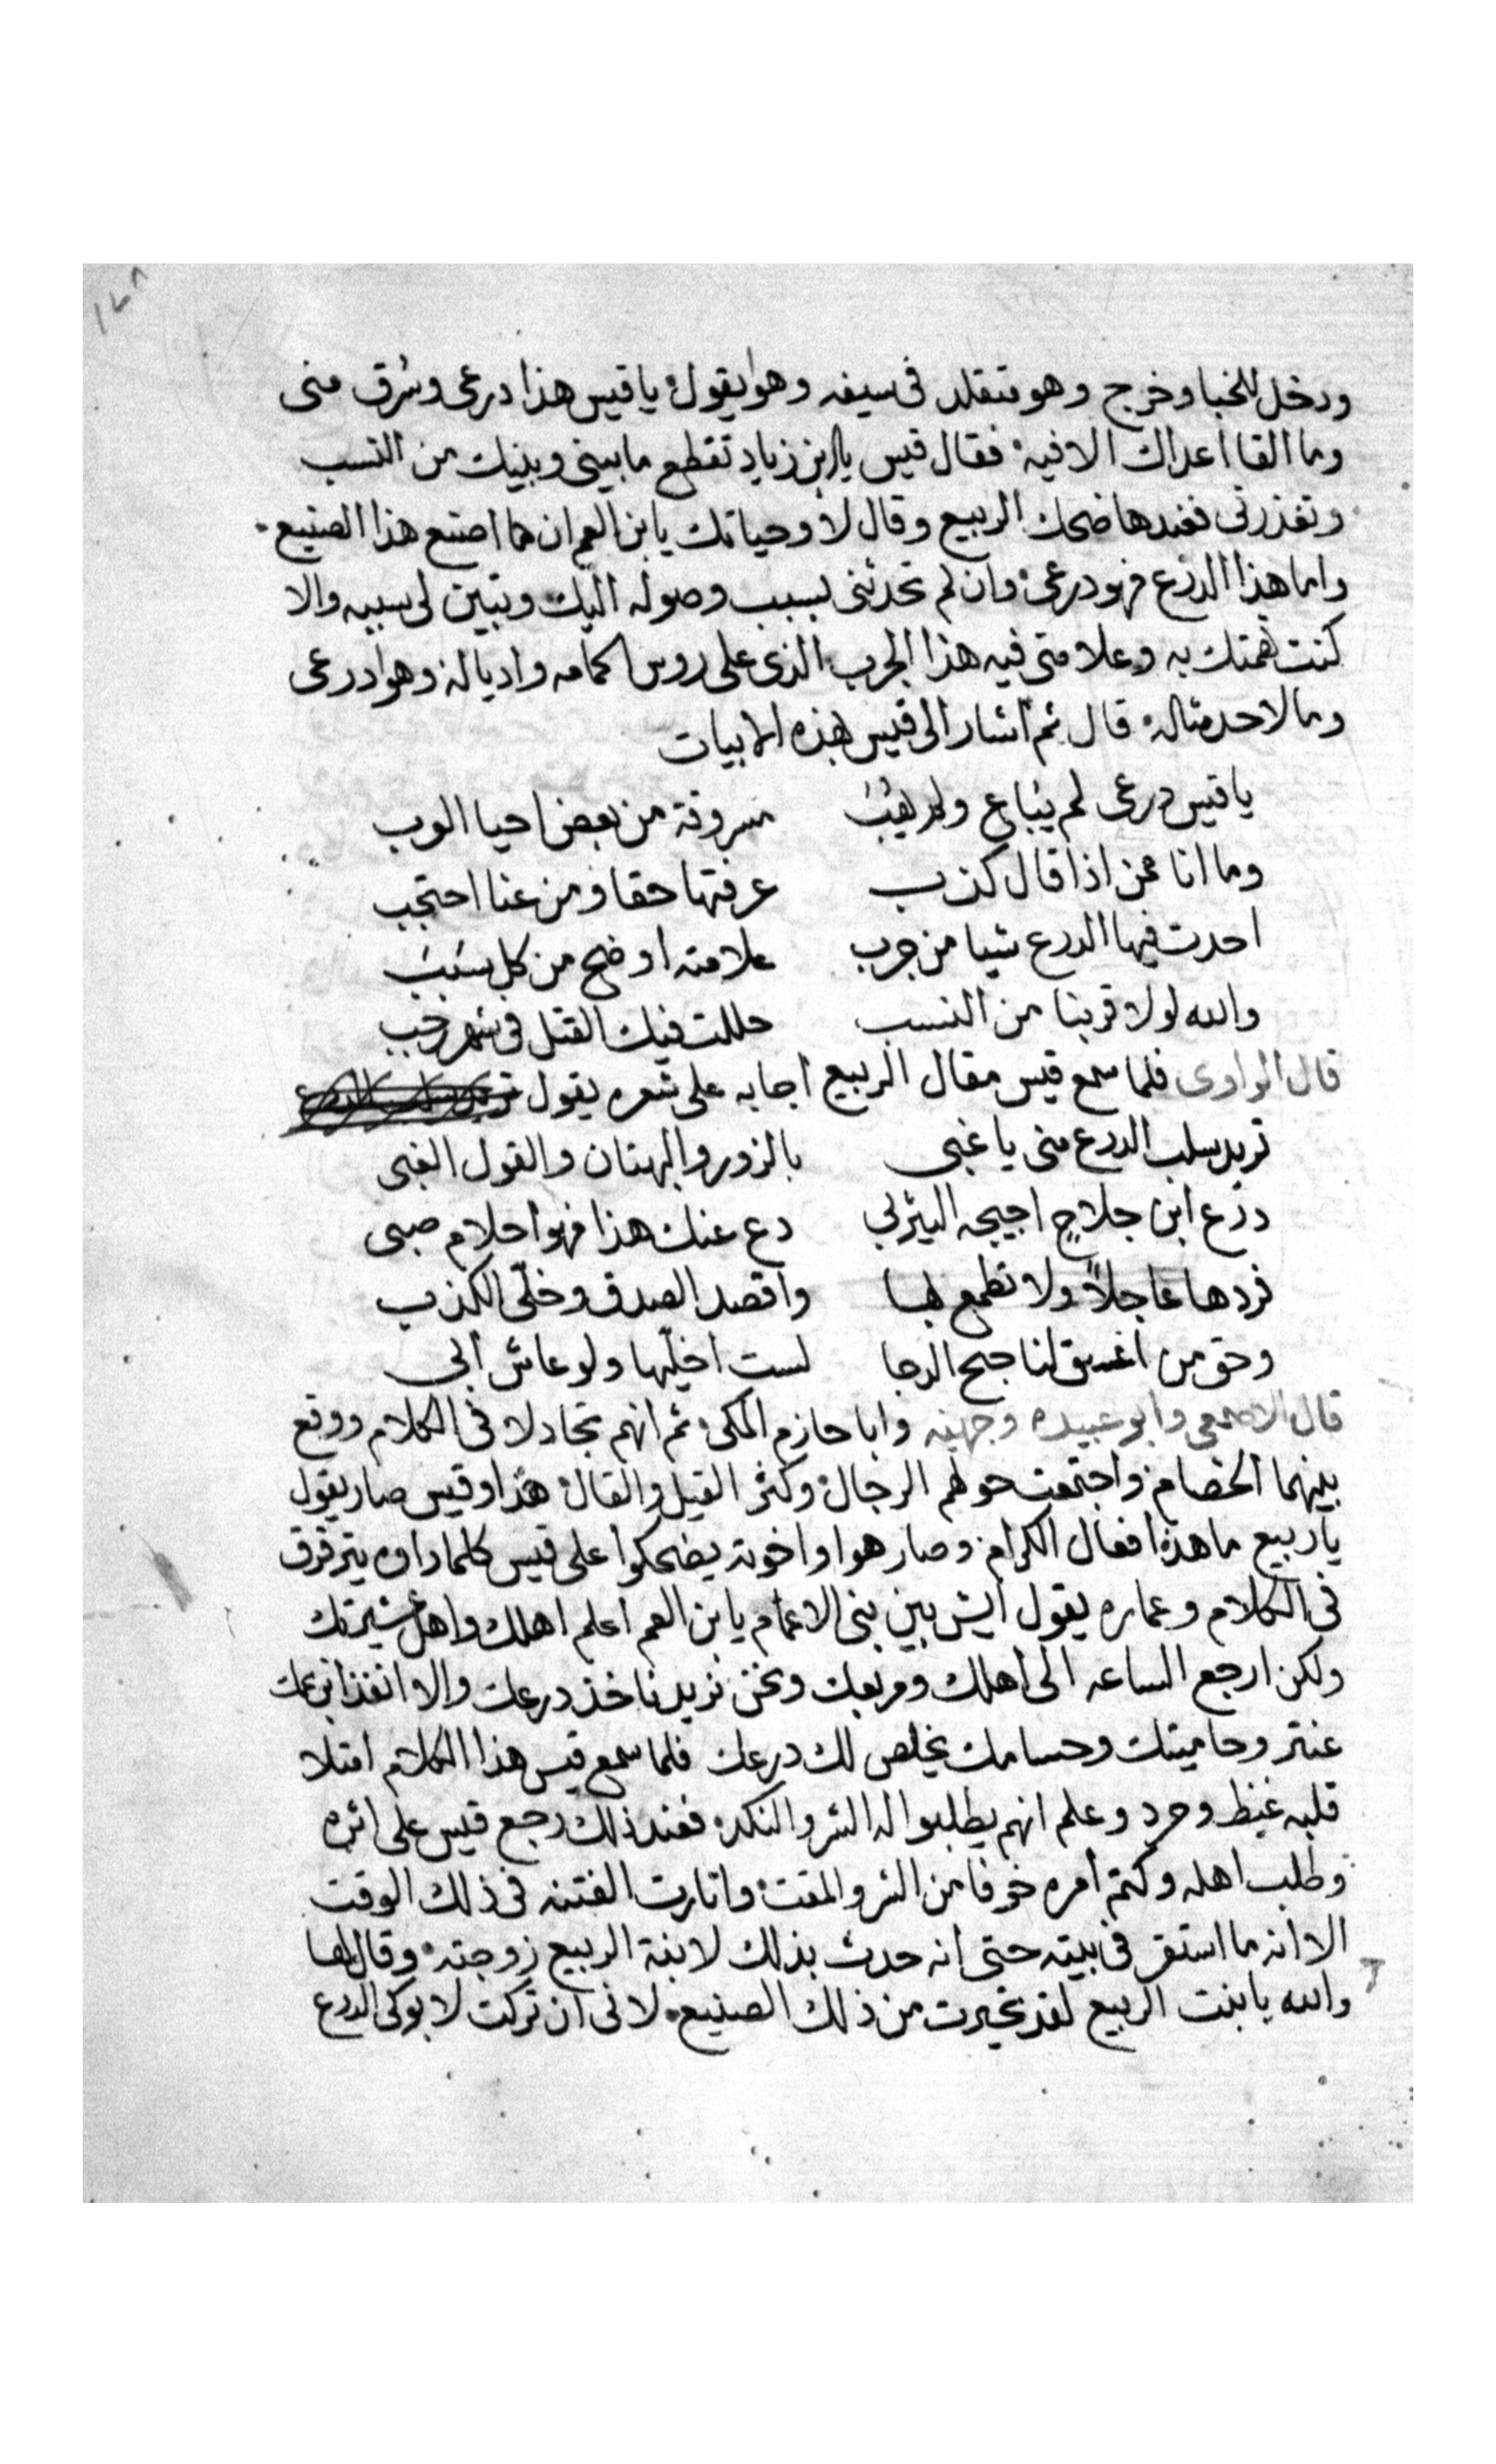 ١٦٨
ودخل للخبا وخرج وهو متقلد فى سيفه وهوا يقول يا قيس هذا درعى وسُرق منى
وما القا اعداك الا فيه فقال قيس يا ابن زياد تقطع ما بينى وبينك من النسب
وتغدرنى فعندها ضحك الربيع وقال لا وحياتك يا بن العم ان ما اصنع هذا الصنيع
واما هذا الدرع فهو درعى وان لم تحدثنى بسبب وصوله اليك وتبين لى سببه والا
كنت تهمتك به وعلامتى فيه هذا الجرب الذى على روس اكمامه واذياله وهوا درعى
وما لاحد مثاله قال ثم اشار الى قيس بهذه الابيات
يا قيس درعى لم يُباع ولم يُهَبْ مسروقة من بعض احيا العرب
وما انا ممن اذا قال كذب عرفتها حقا ومن عنا احتجب
احدت فيها الدرع شيا من جرب علامته اوضح من كل سَبَبْ
والله لولا قربنا من النسب حللت فيك القتل فى شهر رجب
قال الراوى فلما سمع قيس مقال الربيع اجابه على شعره يقول
تريد سلب الدرع منى يا غبى بالزور والبهتان والقول الغبى
درع ابن جلاحٍ احيحه اليثربى دع عنك هذا فهوا احلام صبى
فردها عاجلاً ولا تطمع بها واقصد الصدق وخلّى الكذب
وحق من اغسق لنا جنح الدجا لست اخليها ولو عاش ابى
قال الاصمعى وابو عبيده وجهينه وابا حازم المكى ثم انهم تجادلا فى الكلام ووقع
بينهما الخصام واجتمعت حولهم الرجال وكثر القيل والقال هذا وقيس صار يقول
يا ربيع ما هذه افعال الكرام وصار هوا واخوته يضحكوا على قيس كلما راوه يترفق
فى الكلام وعماره يقول ايش بين بنى الاعمام يا بن العم اعلم اهلك واهل عشيرتك
ولكن ارجع الساعه الى اهلك ومربعك ونحن نريد ناخذ درعك والا انفذ ابن عمك
عنتر وحاميتك وحسامك يخلص لك درعك فلما سمع قيس هذا الكلام امتلا
قلبه غيظ وحرد وعلم انهم يطلبوا له الشر والنكد فعند ذلك رجع قيس على اثره
وطلب اهله وكتم امره خوفا من الشر والمقت واثارت الفتنه فى ذلك الوقت
الا انه ما استقر فى بيته حتى انه حدث بذلك لابنة الربيع زوجته وقال لها
والله يا بنت الربيع لقد تحيرت من ذلك الصنيع لانى ان تركت لابوكى الدرع